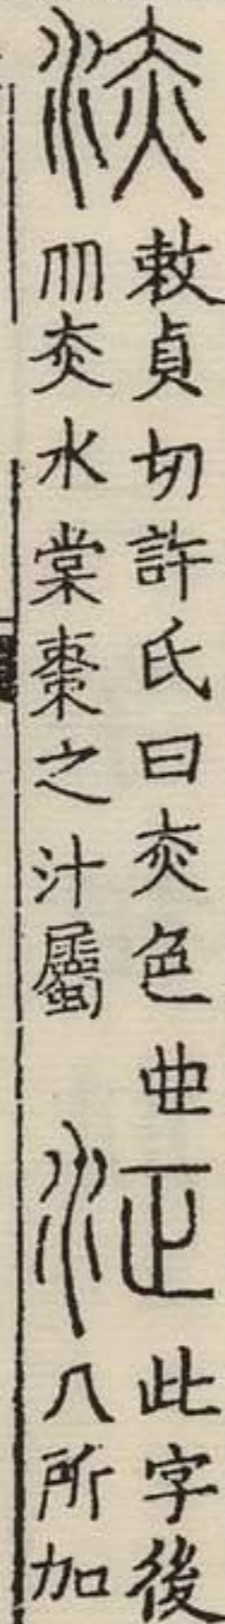 浾
敕貞切許氏曰灻色也
从灻水棠棗之汁屬
泟
此字後
人所加